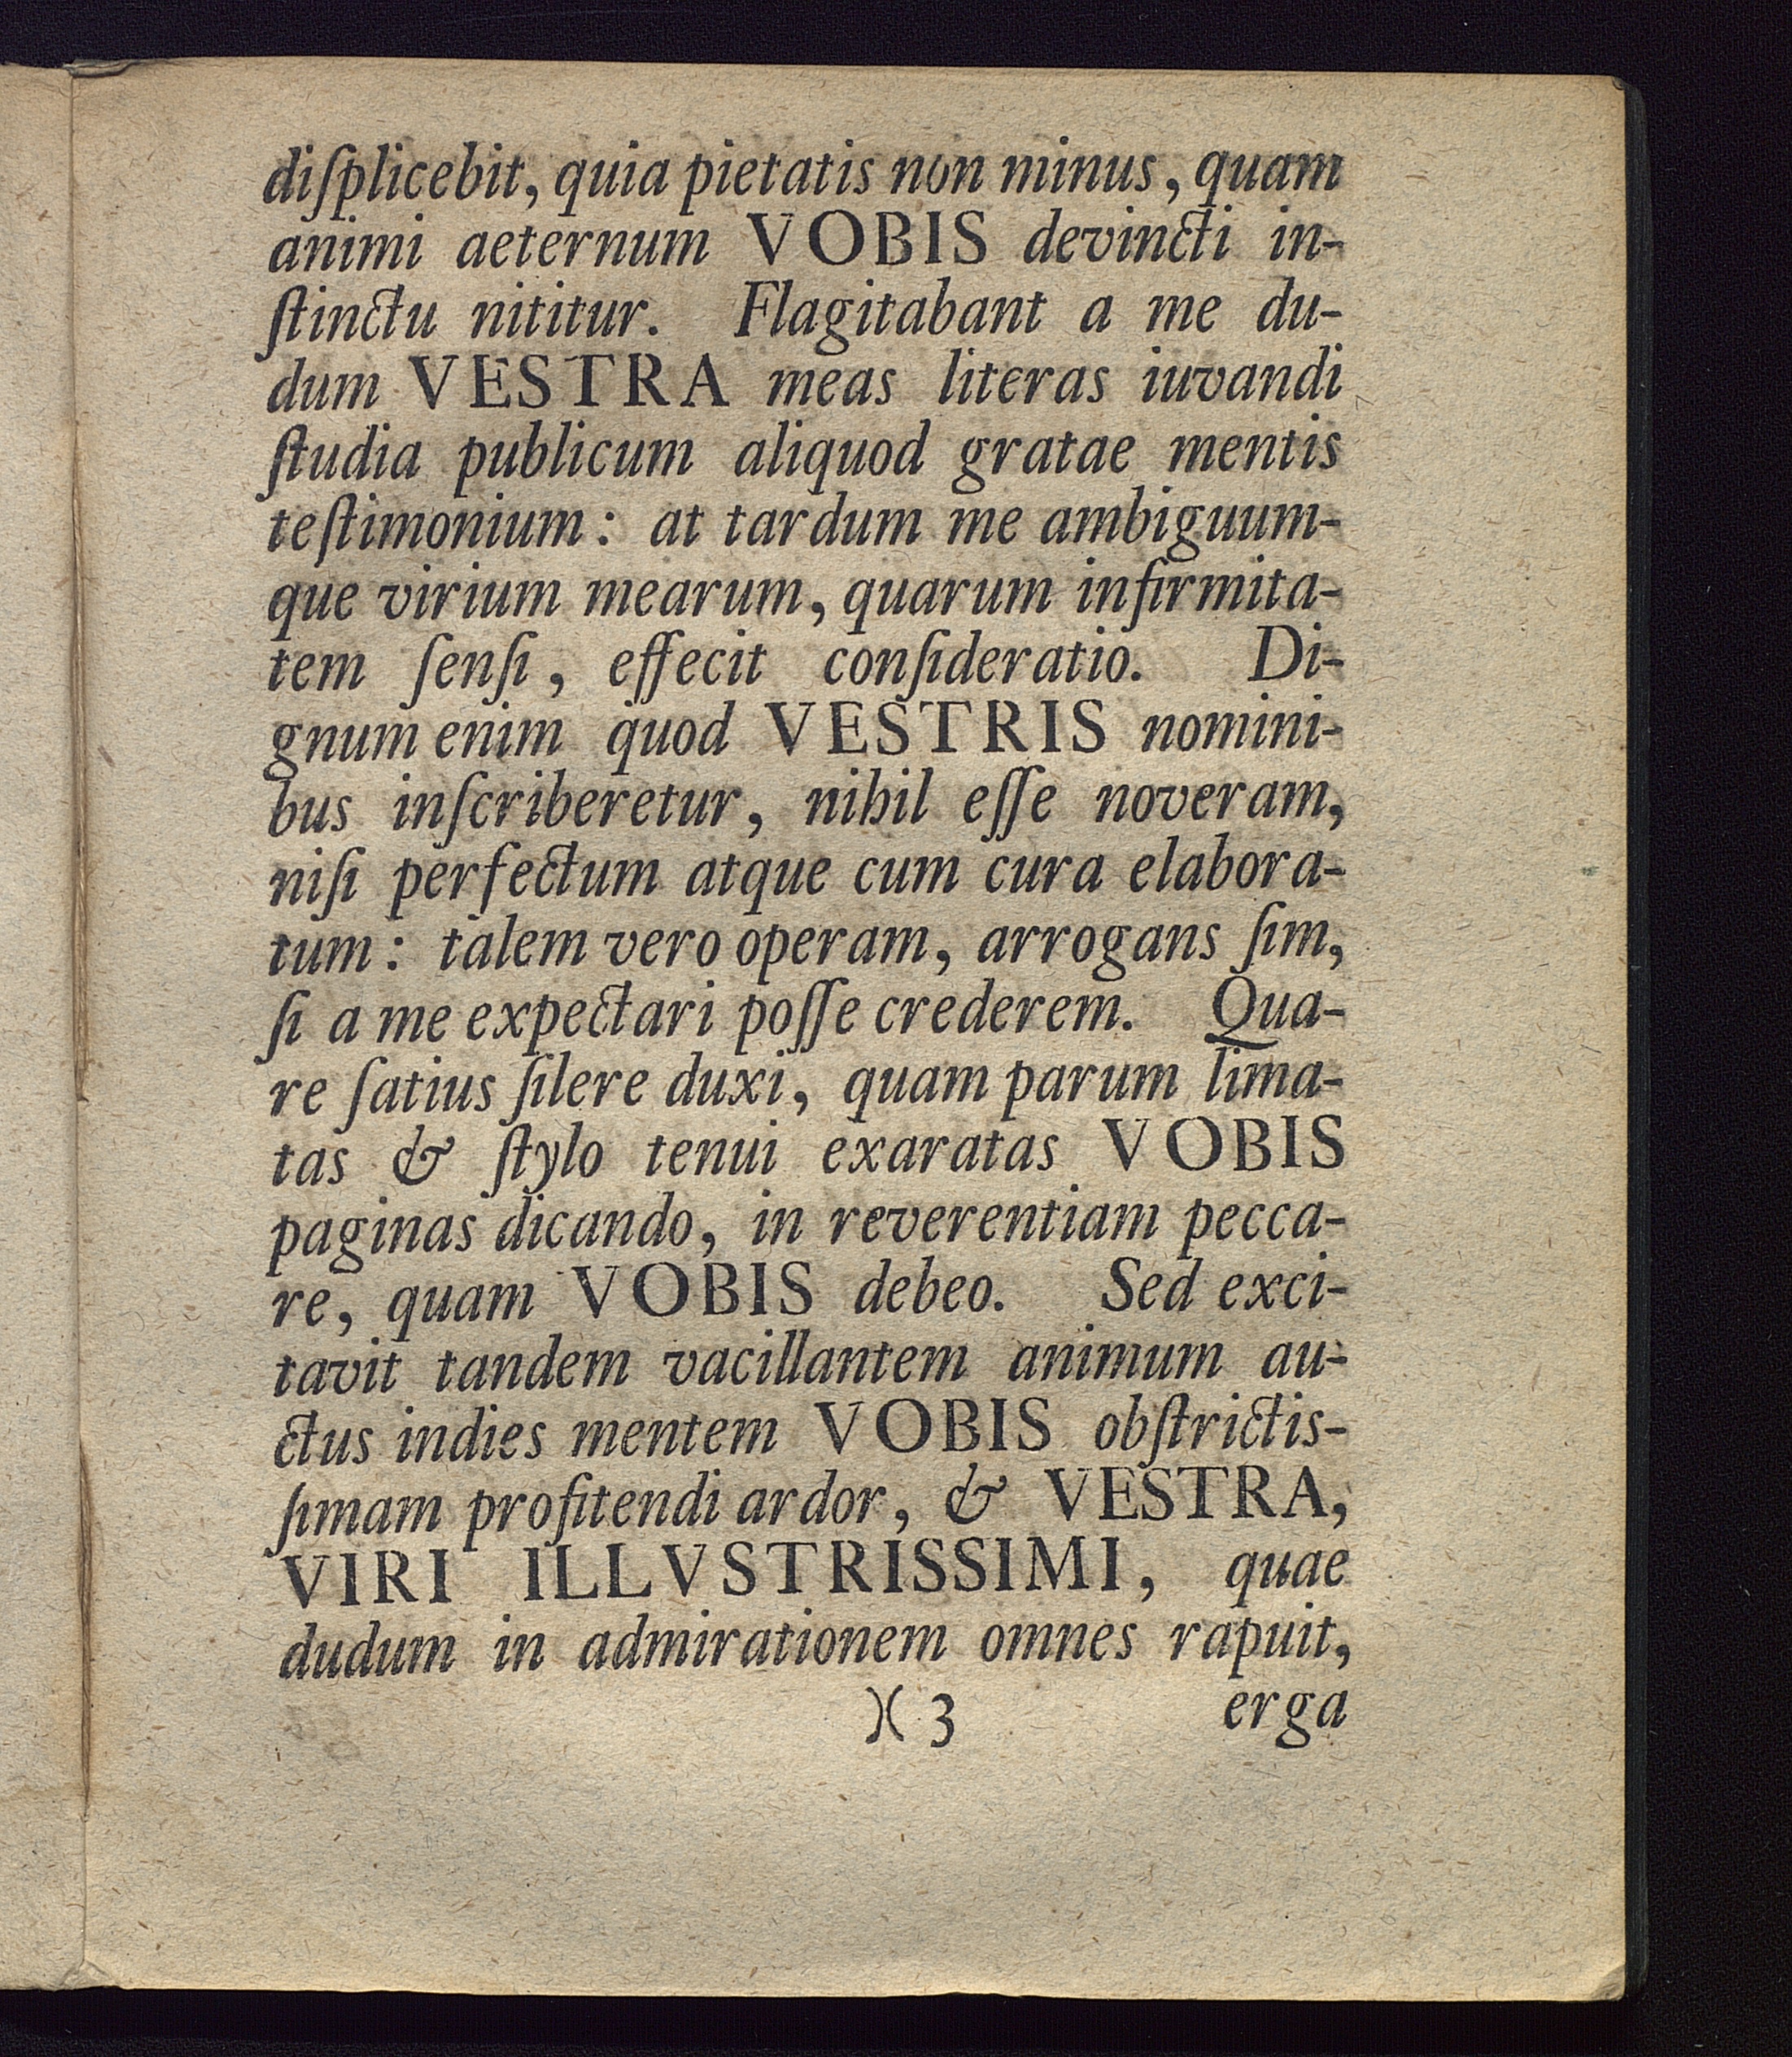 diſplicebit, quia pietatis non minus, quam
animi aeternum VOBIS devincti in-
ſtinctu nititur. Flagitabant a me du-
dum VESTRA meas literas iuvandi
ſtudia publicum aliquod gratae mentis
teſtimonium: at tardum me ambiguum-
que virium mearum, quarum infirmita-
tem ſenſi, effecit conſideratio. Di-
gnum enim quod VESTRIS nomini-
bus inſcriberetur, nihil eſſe noveram,
niſi perfectum atque cum cura elabora-
tum: talem vero operam, arrogans ſim,
ſi a me expectari poſſe crederem. Qua-
re ſatius ſilere duxi, quam parum lima-
tas & ſtylo tenui exaratas VOBIS
paginas dicando, in reverentiam pecca-
re, quam VOBIS debeo. Sed exci-
tavit tandem vacillantem animum au-
ctus indies mentem VOBIS obſtrictis-
ſimam profitendi ardor, & VESTRA,
VIRI ILLVSTRISSIMI, quae
dudum in admirationem omnes rapuit,
)( 3 erga